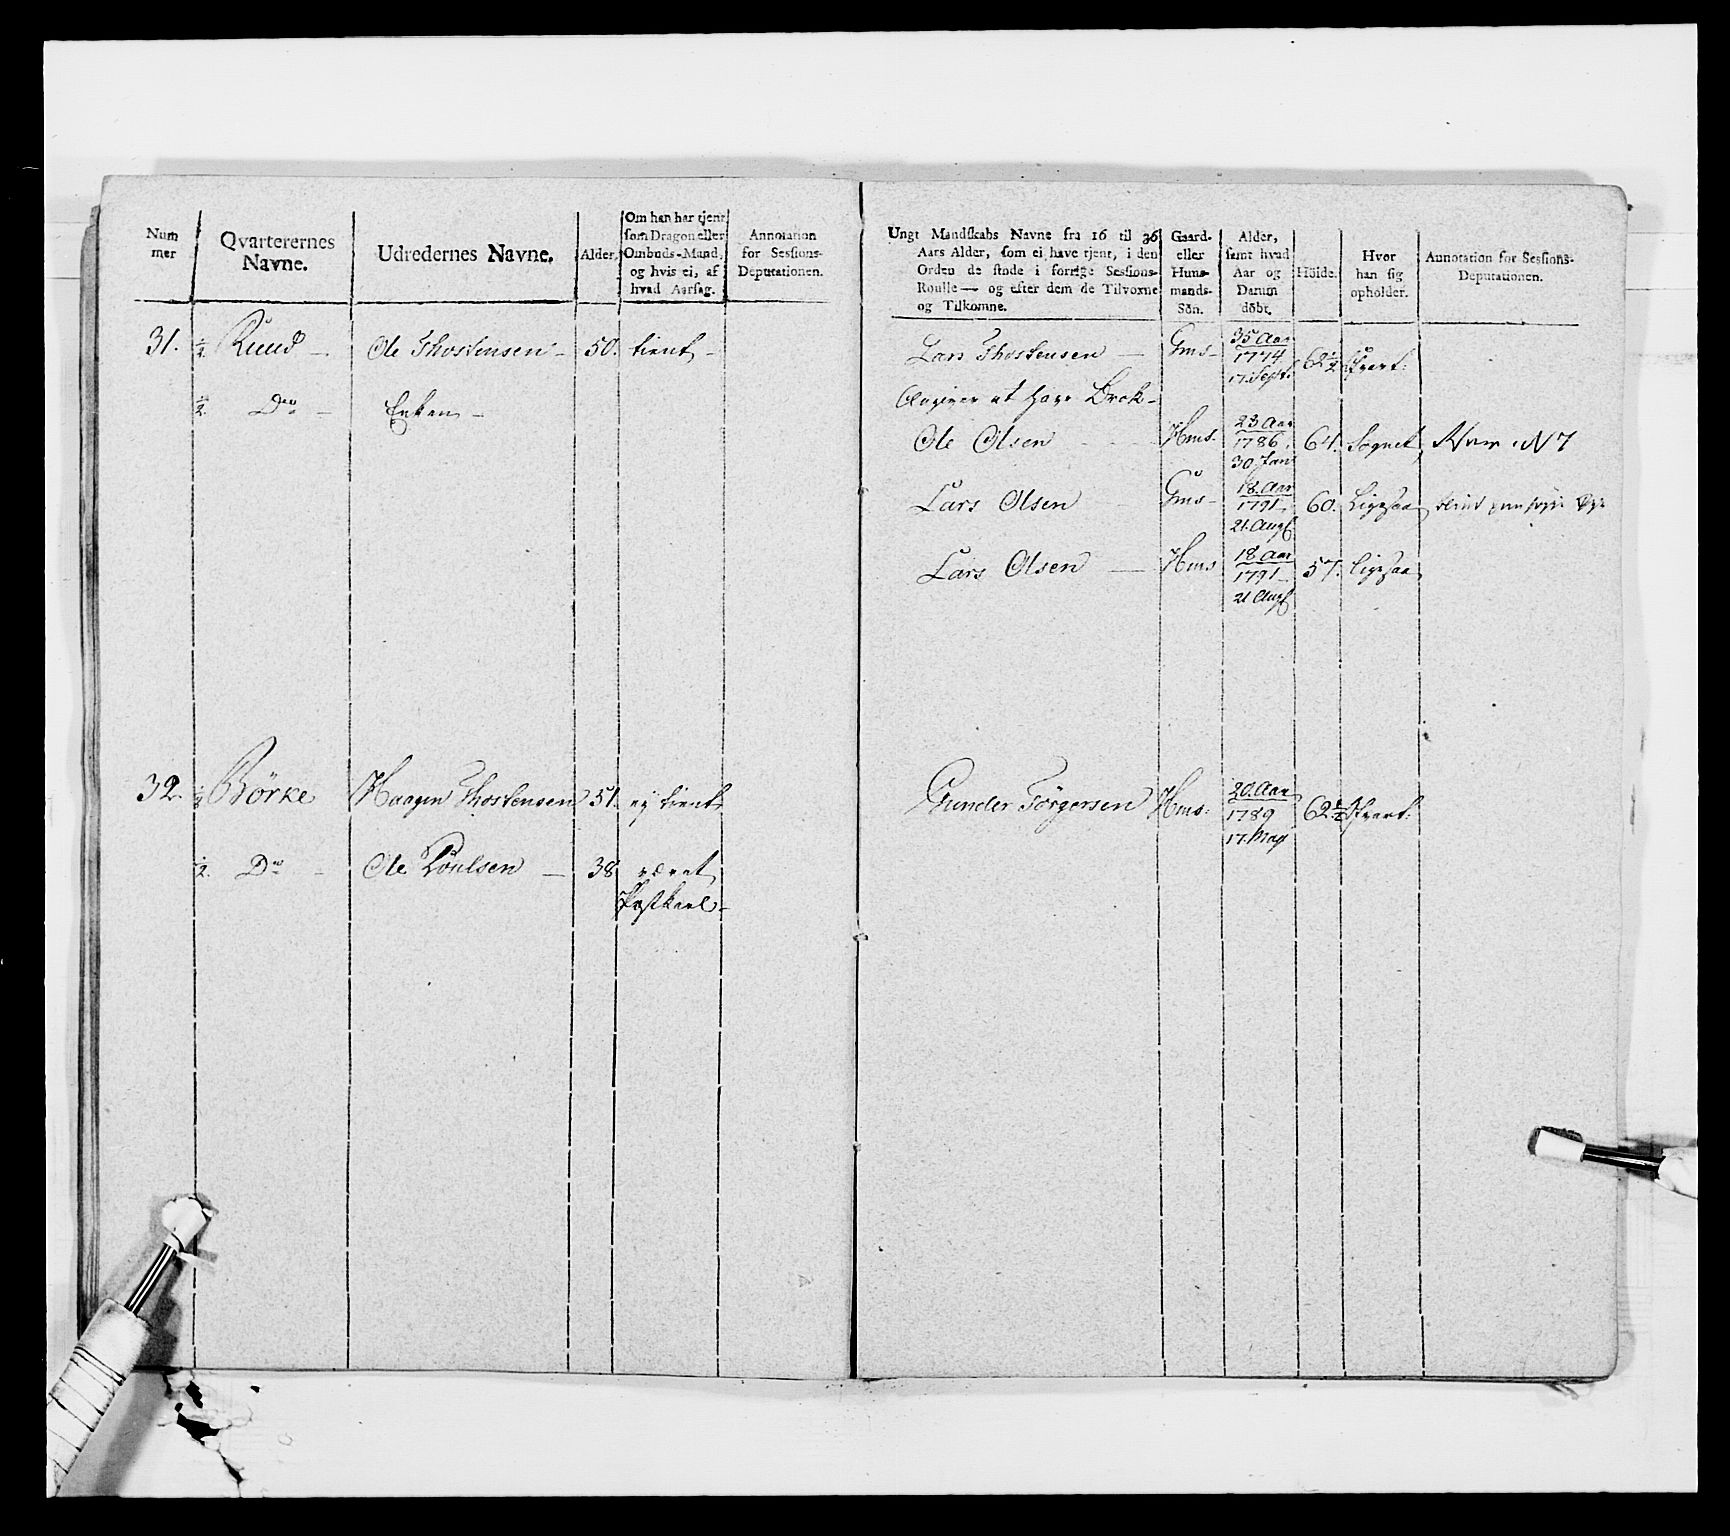 Num
mer
Qvarterernes
Navne.
Udredernes Navne.
Alder.
Om han har tjent
som Dragon eller
Ombuds-Mand,
og hvis ei, af
hvad Aarsag.
Annotation
for Sessions-
Deputationen.
Ungt Mandskabs Navne fra 16 til 36
Aars Alder, som ei have tjent, i den
Orden de stode i forrige Sessions-
Roulle — og efter dem de Tilvoxne
og Tilkomne.
Gaard-
eller
Huus-
mands-
Sön.
Alder,
samt hvad
Aar og
Datum
döbt.
Höide.
Hvor
han sig
opholder.
Annotation for Sessions-
Deputationen.
31. ½ Ruud — Ole Thostensen — 50. tient —
½ Do — Enken —
Lars Thostensen — Gms — 35 Aar 62½ Qvart:
1774
17. Sept.
Angiver at have Brok —
Ole Olsen Hms. 23 Aar 64. Sognet N 7
1786.
30 Jan
Lars Olsen Gms — 18. Aar 60. Ligesaa
1791
21. Aug.
Lars Olsen — Hms 18 Aar 57. ligesaa
1791
21 Aug
32. ½ Börke Haagen Thostensen 51. ej tient
½. Do — Ole Poulsen — 38 været
Postkarl —
Gunder Törgersen Hms: 20. Aar 62½ Qvart:
1789
17. May